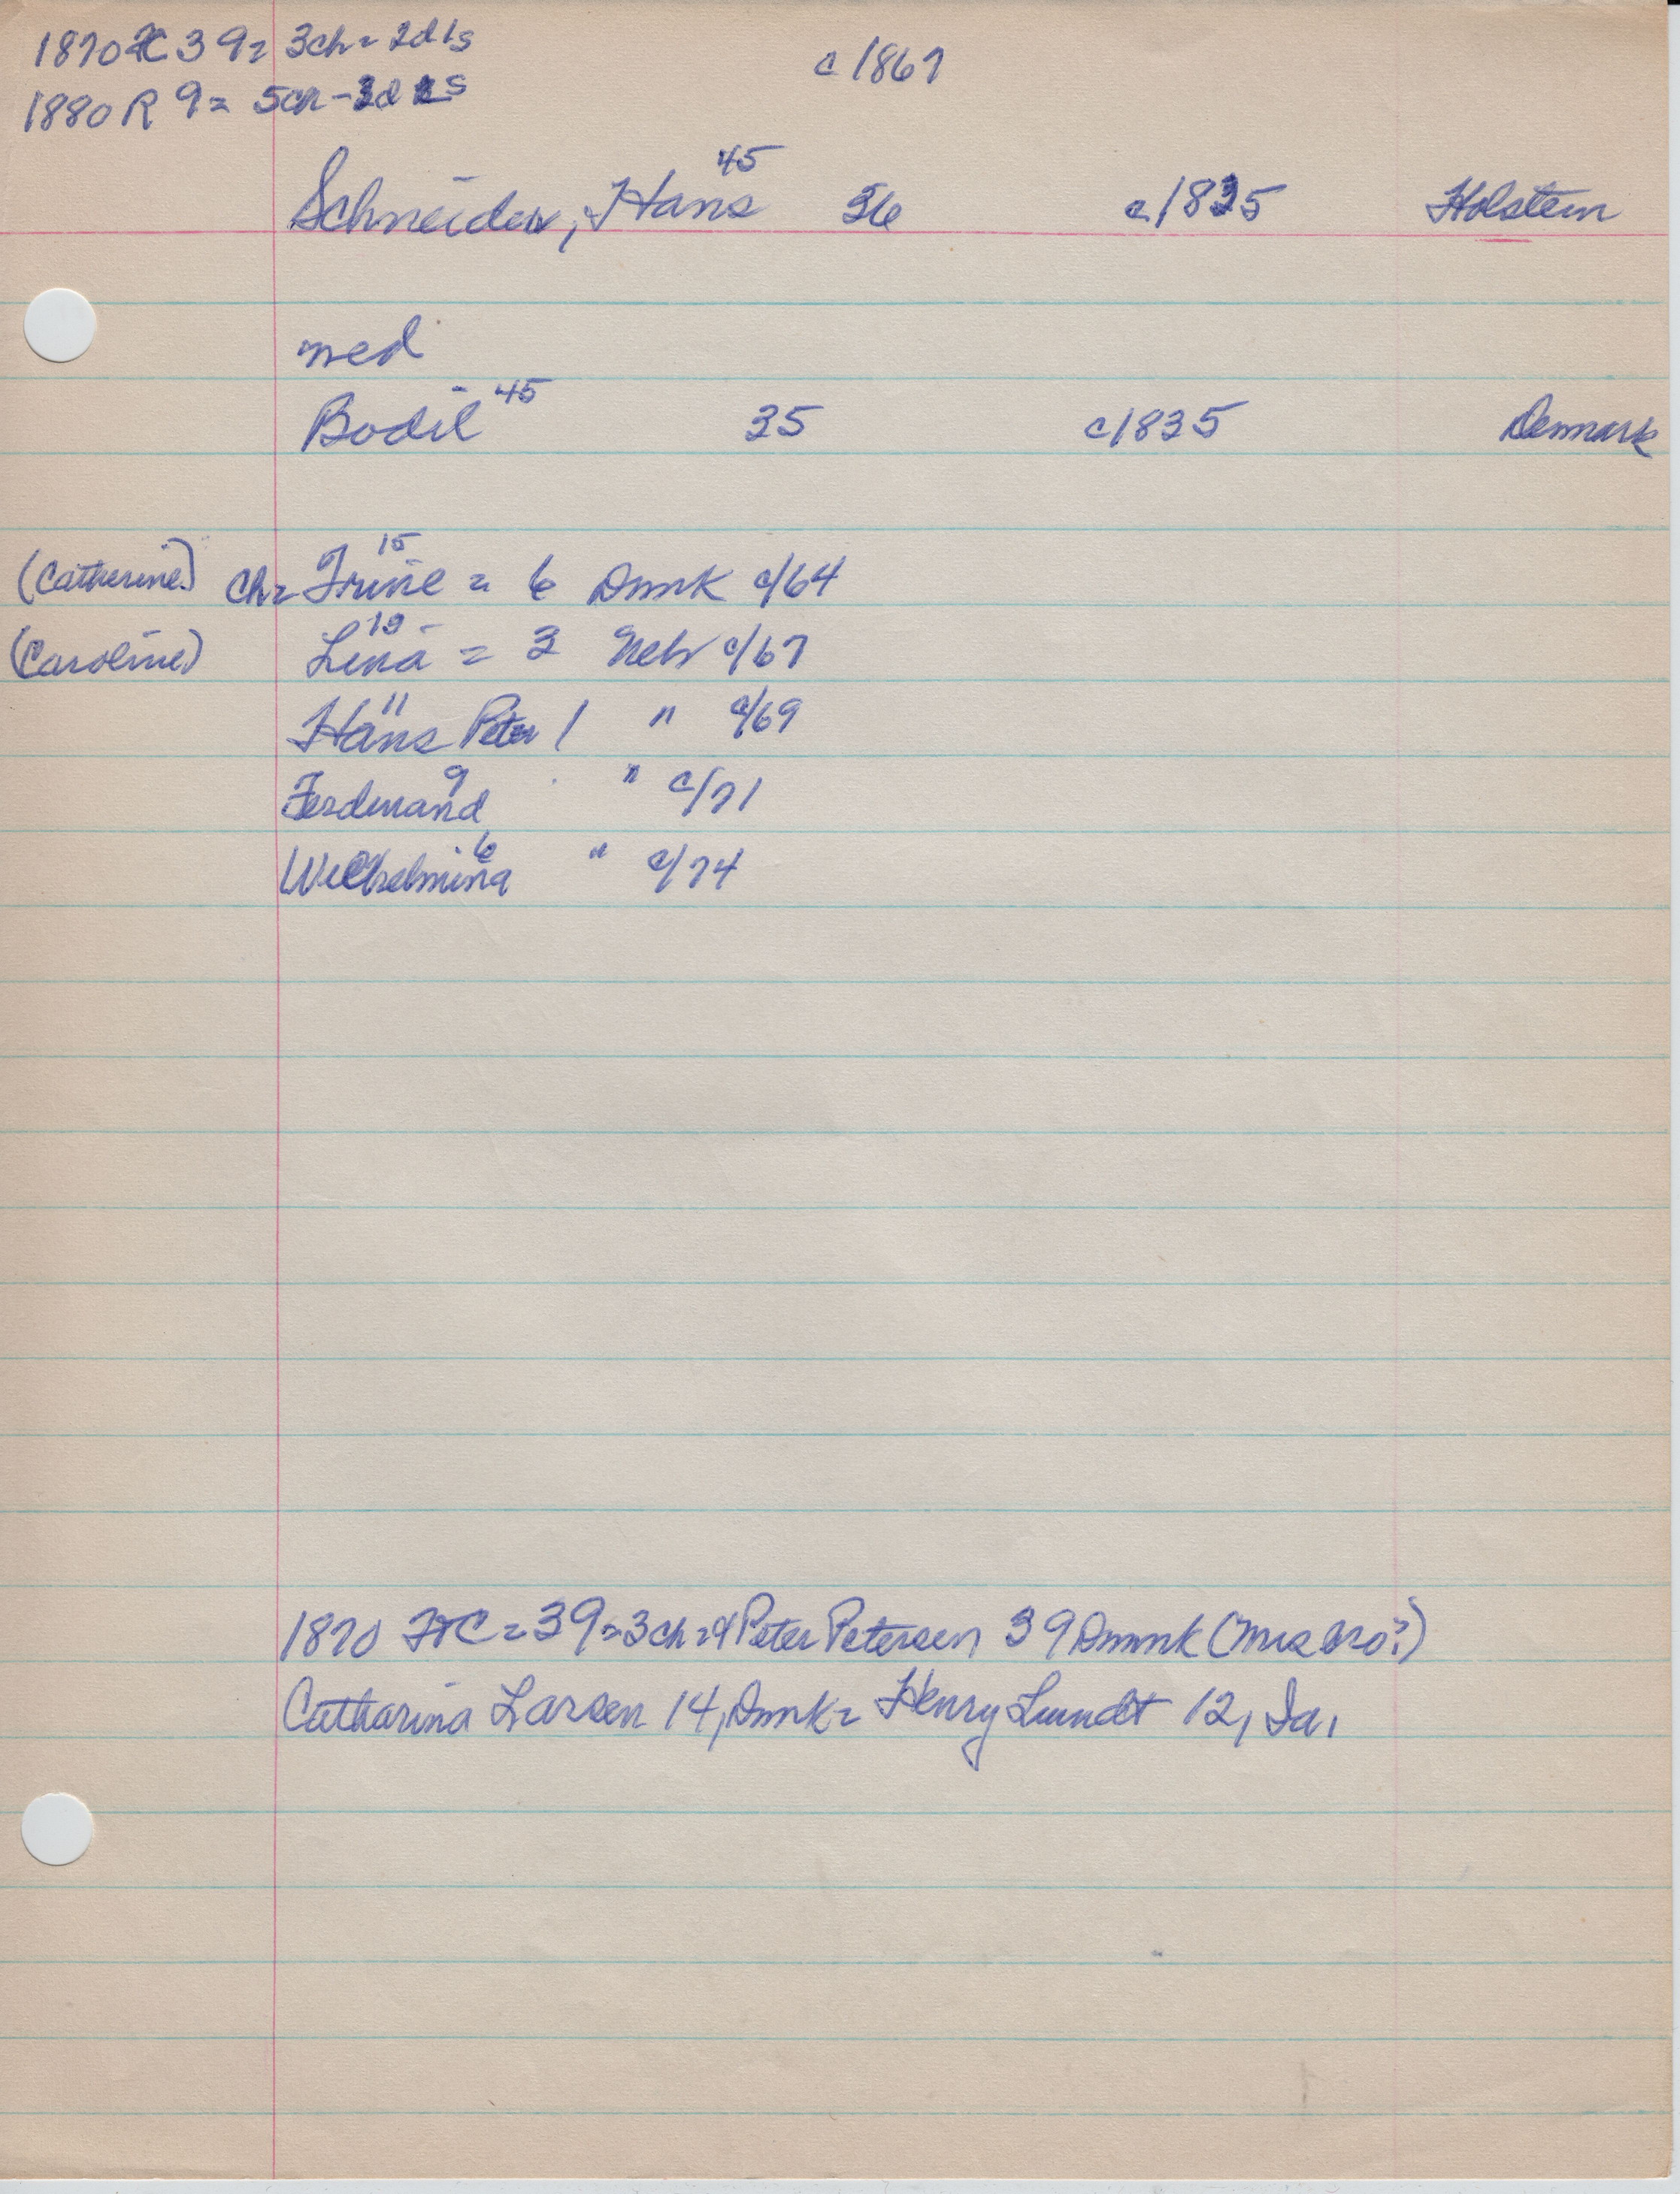 1870 FC 39= 3ch= 2d 1s
c 1867
1880 R 9= 5ch - 3d 2s
45
Schneider, Hans 36 c1835 Holstein
med
Bodil 45 35 c1835 Denmark
15
(Catherine) Ch= Trine = 6 Dnmk c/64
13
(Caroline) Lena = 3 Neb c/67
11
Hans Peter 1 " c/69
9
Ferdinand " c/71
6
Wilhelmina " c/74
1870 FtC = 39 = 3ch = & Peter Petersen 39 Dnmk (Mrs bro?)
Catharina Larsen 14, Dnmk = Henry Lundt 12, Ia.